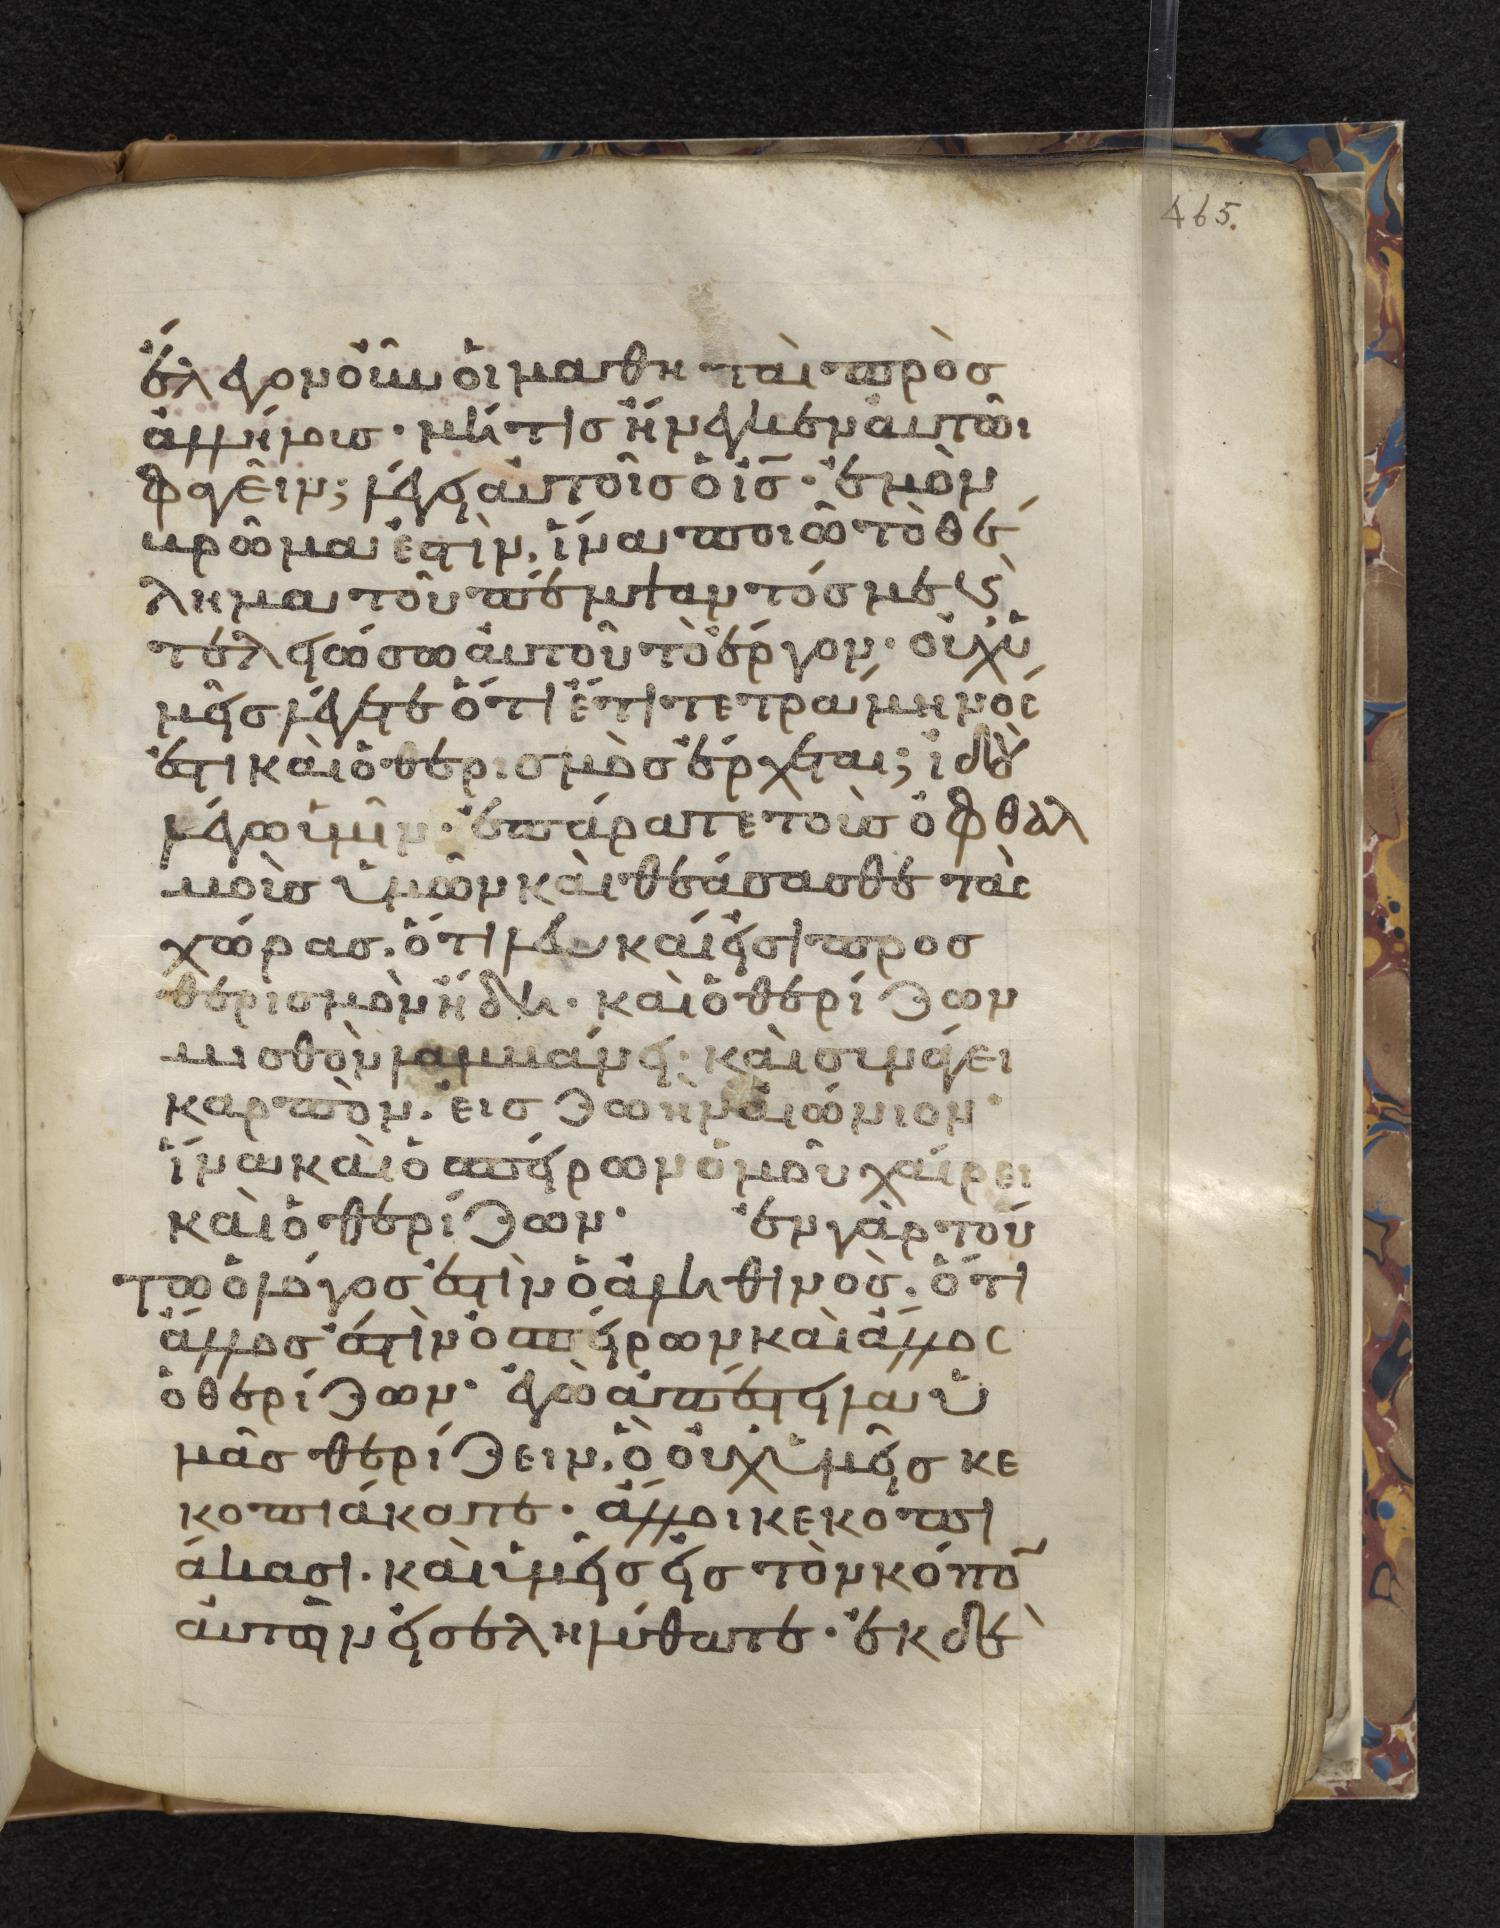 465.
ἔλεγον οὖν οἱ μαθηταὶ πρὸς
ἀλλήλους· μή τις ἤνεγκεν αὐτῶι
φαγεῖν; λέγει αὐτοῖς ὁ ἰ̅ς̅· ἐμὸν
βρῶμα ἐστὶν, ἵνα ποιῶ τὸ θέ
λημα τοῦ πέμψαντός με ϛ
τελειώσω αὐτοῦ τὸ ἔργον· οὐχ ὑ
μεῖς λέγετε ὅτι ἔτι τετράμηνός
ἐστι καὶ ὁ θερισμὸς ἔρχεται; ἰδοὺ
λέγω ὑμῖν· ἐπάρατε τοὺς ὀφθαλ
μοὺς ὑμῶν καὶ θεάσασθε τὰς
χώρας, ὅτι λευκαί εἰσι προς
θερισμὸν ἤδη· καὶ ὁ θερίζων
μισθὸν λαμβάνει· καὶ συνάγει
καρπὸν, εἰς ζωὴν αἰώνιον·
ἵνα καὶ ὁ σπείρων ὁμοῦ χαίρει
καὶ ὁ θερίζων· ἐν γὰρ τού
τω ὁ λόγος ἐστὶν ὁ ἀληθινὸς, ὅτι
ἄλλος ἐστὶν ὁ σπείρων καὶ ἄλλος
ὁ θερίζων· ἐγὼ ἀπέστειλα ὑ
μᾶς θερίζειν, ὃ οὐχ ὑμεῖς κε
κοπιάκατε· ἄλλοι κεκοπι
άκασι· καὶ ὑμεῖς εἰς τὸν κόπο̅
αὐτῶν εἰσεληλύθατε· ἐκ δὲ